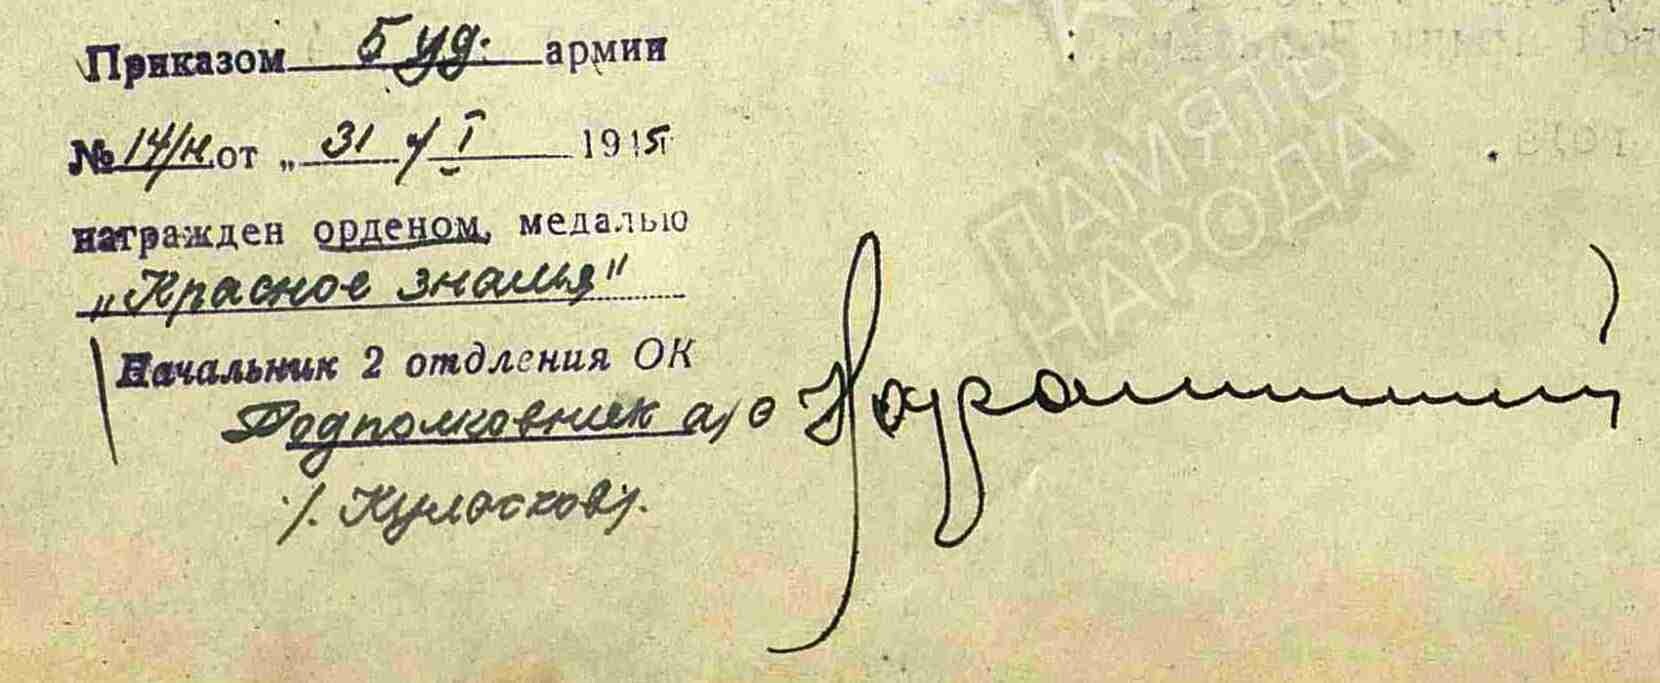 Приказом 5 уд. армии
№ 14/н от „31" I 1945 г
награжден орденом, медалью
„Красное знамья"
Начальник 2 отдления ОК
Подполковник а/с
ПАМЯТЬ
НАРОДА